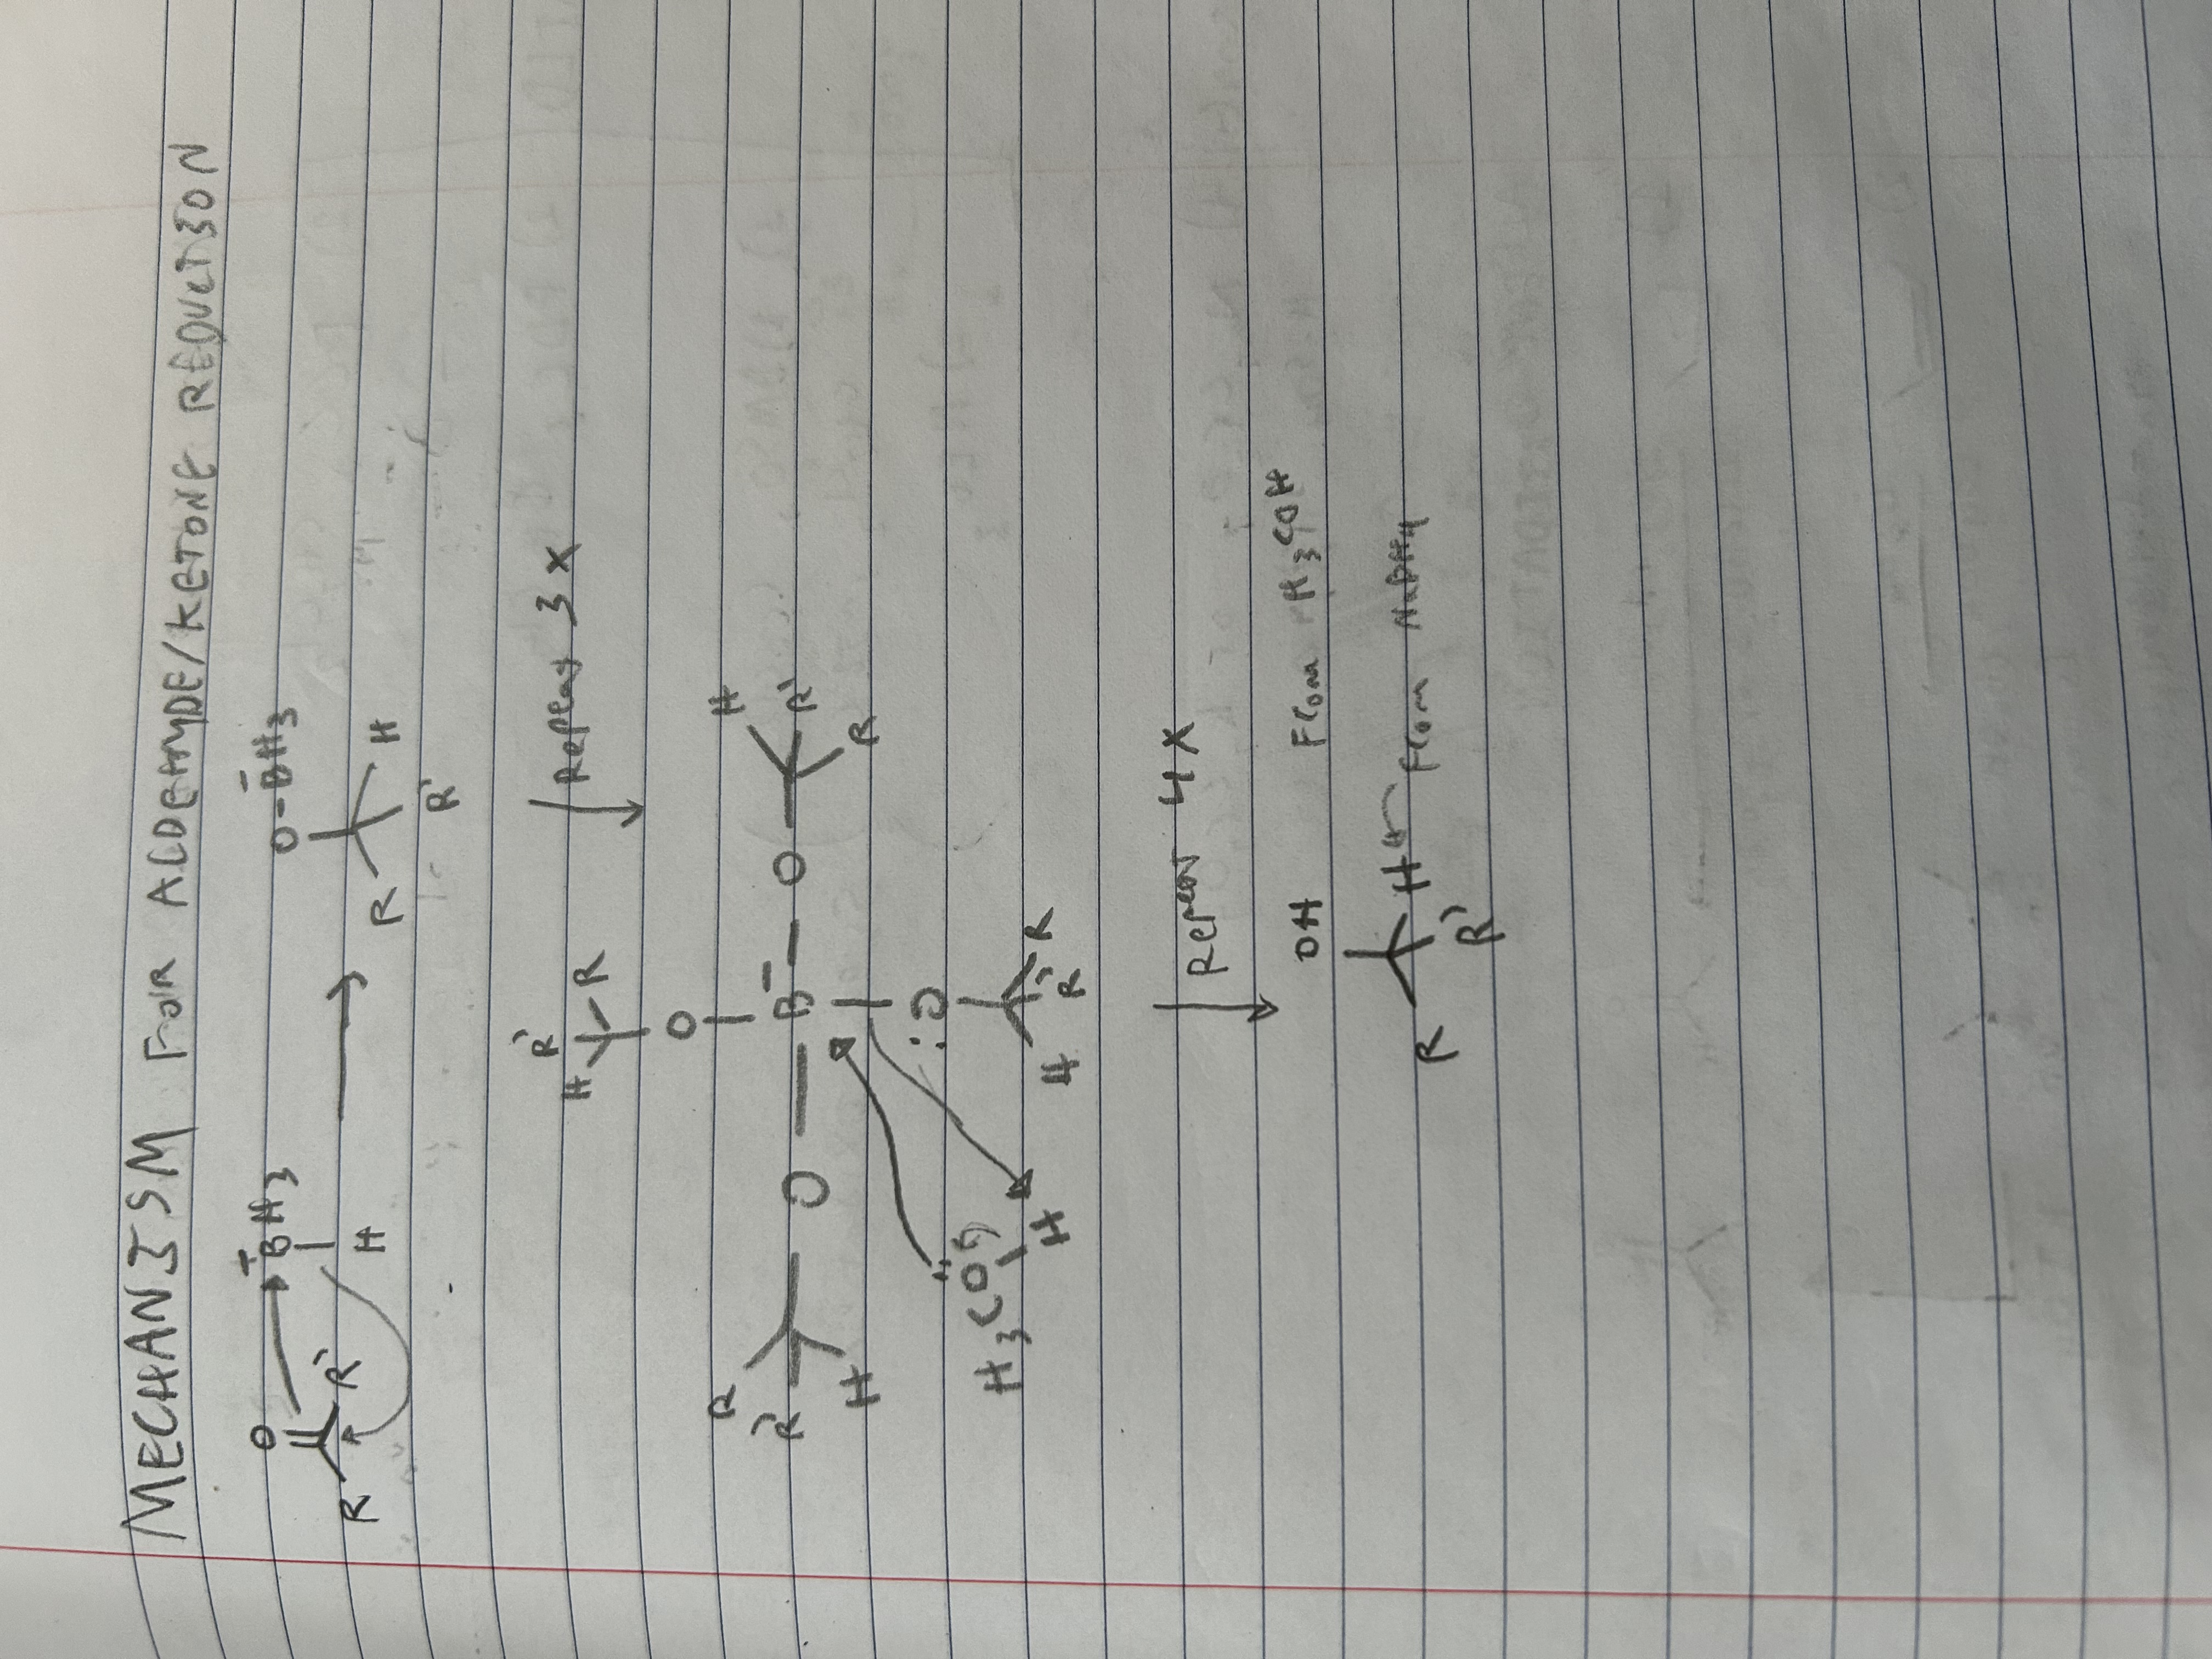 MECHANISM FOR ALDEHYDE/KETONE REDUCTION
O ¯BH3 O-¯BH3
R R' H R H R'
Repeat 3X
R' R H
O
R R' H O B¯ O H R' R
:O
H3CO H H R' R
Repeat 4X
OH From H3COH
R H From NaBH4
R'